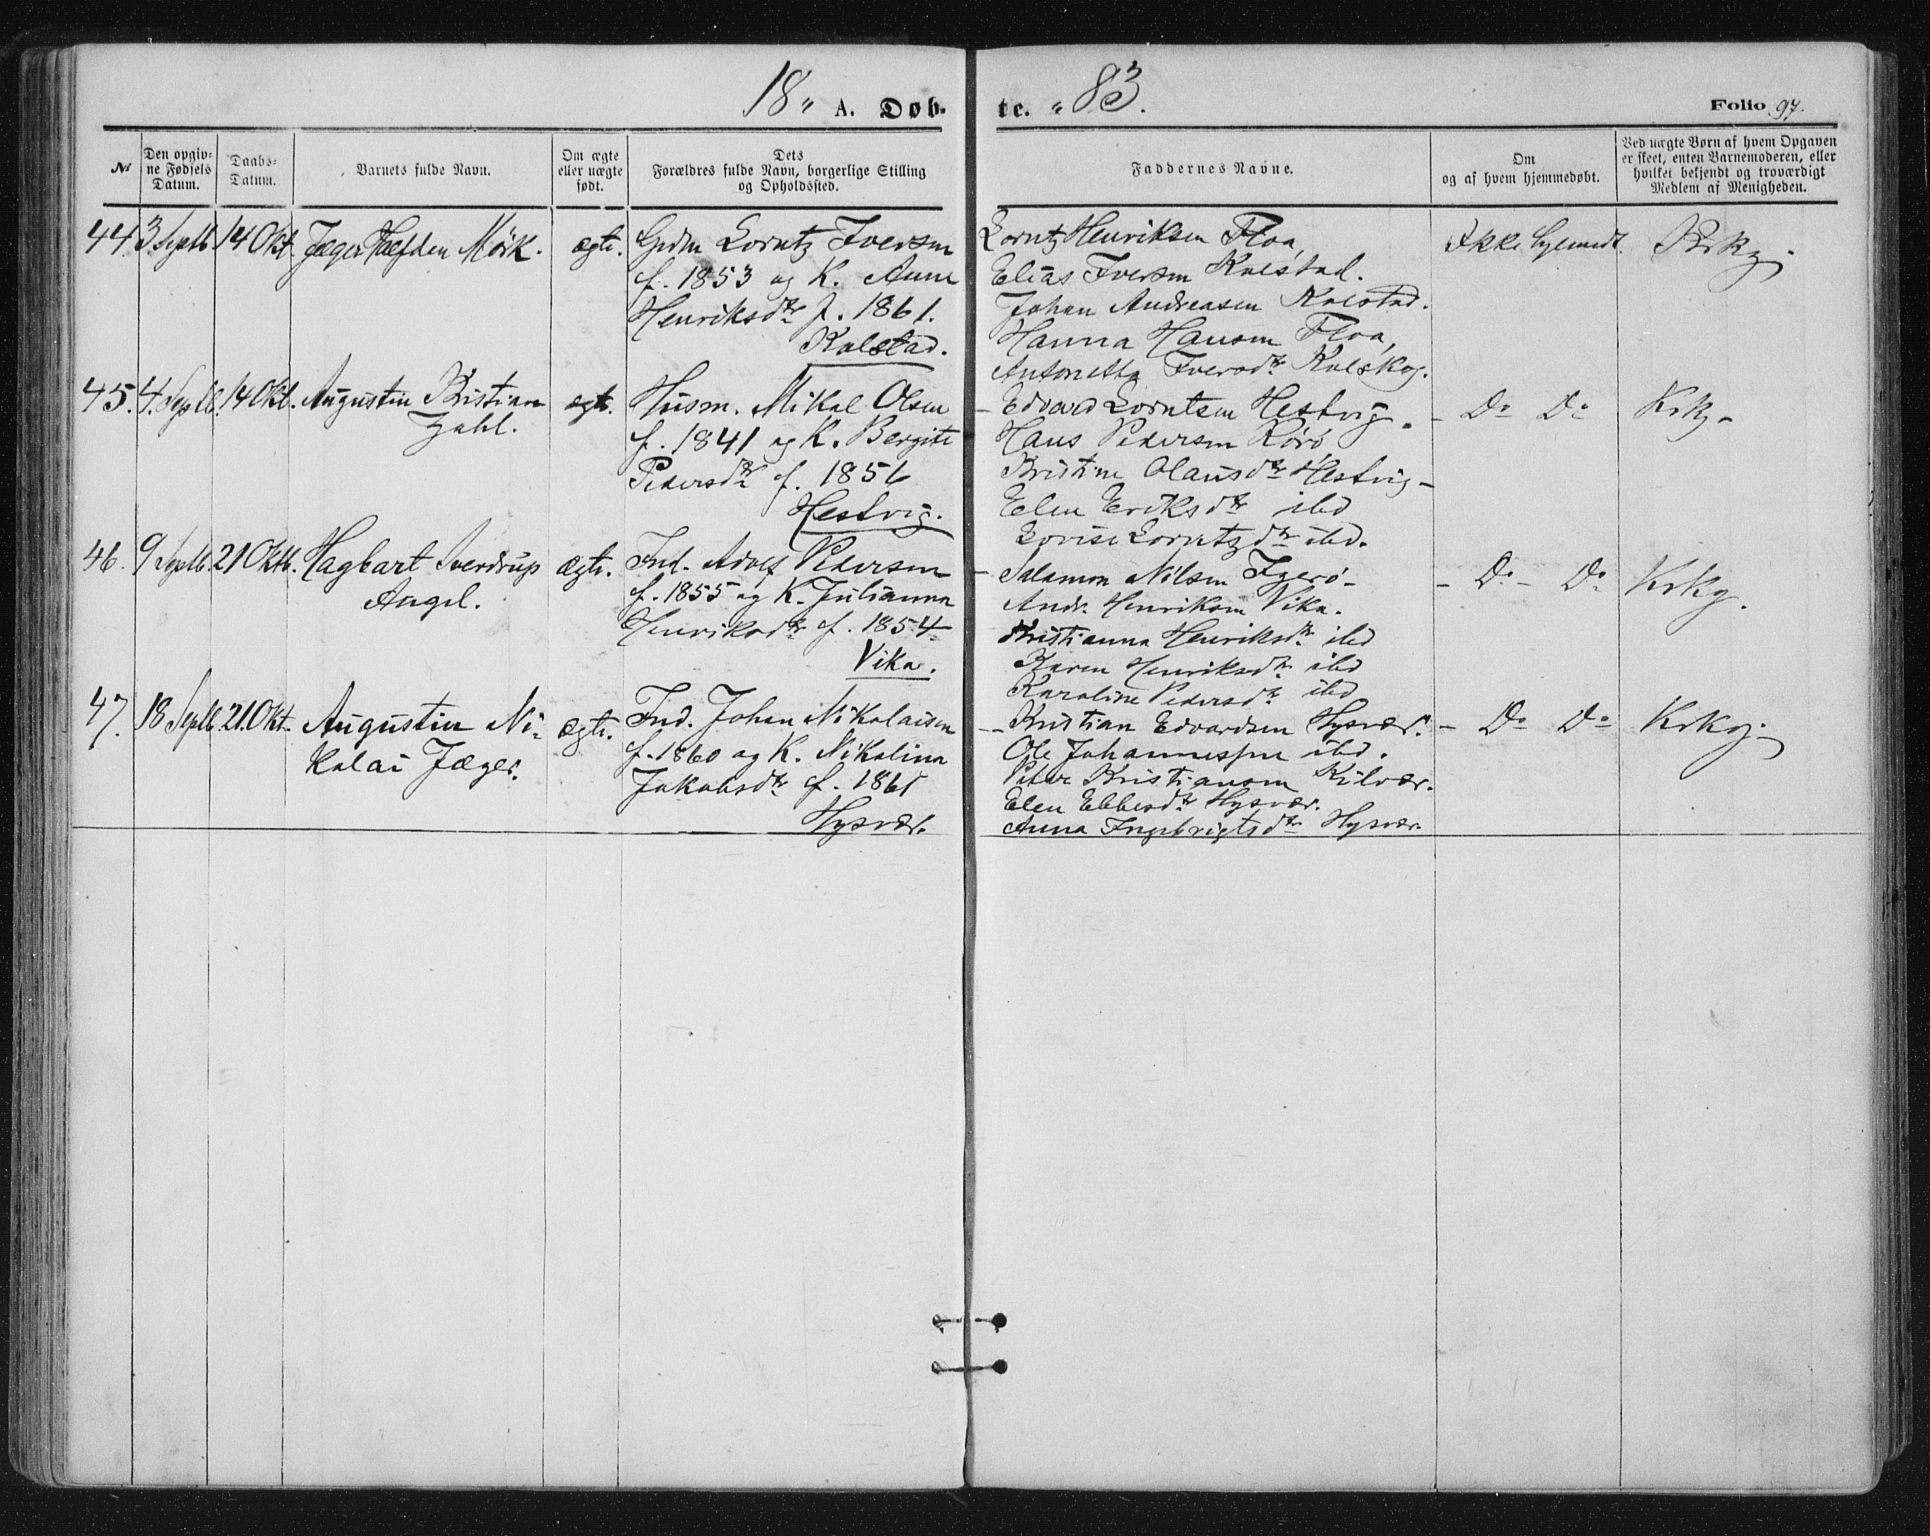 18 " A. Døb-
te. " 83.
Folio 97.
№
Den opgiv-
ne Fødsels
Datum.
Daabs-
Datum.
Barnets fulde Navn.
Om ægte
eller uægte
født.
Dets
Forældres fulde Navn, borgerlige Stilling
og Opholdssted.
Faddernes Navne.
Om
og af hvem hjemmedøbt.
Ved uægte Børn af hvem Opgaven
er skeet, enten Barnemoderen, eller
hvilket bekjendt og troværdigt
Medlem af Menigheden.
44. 3 Septb. 14 Okt. Jæger Hafden Mörk. ægte.
Grdm Lorntz Iversen
f. 1853 og K. Anne
Henriksdtr f. 1861.
Kolstad.
Lorntz Henriksen Floa,
Elias Iversen Kolstad.
Johan Andreasen Kolstad.
Hanna Hansen Floa,
Antonetta Iversdtr Kolskog.
Ikke hjemmedt.
Krkg.
45. 4 Septb. 14 Okt. Augustin Kristian
Zahl.
ægte.
Husm. Mikal Olsen
f. 1841 og K. Bergite
Pedersdtr f. 1856
Hestvig.
- Edvard Lorntsen Hestvig.
Hans Pedersen Rörö
Kristine Olausdtr Hestvig -
Elen Eriksdtr ibd
Lovise Lorntzdtr ibd.
- Do Do
Krkg -
46. 9 Septb. 21 Oktb. Hagbart Sverdrup
Angel.
ægte.
Ind. Adolf Pedersen
f. 1855 og K. Julianna
Henriksdtr f. 1854
Vika.
- Salamon Nilsen Igerö -
Andr. Henriksen Vika.
Kristianna Henriksdtr ibd
Karen Henriksdtr ibd
Karoline Pedersdtr ibd
- Do - Do
Krkg.
47. 18 Septb. 21 Okt. Augustin Ni-
kolai Jæger.
ægte.
Ind. Johan Nikolaisen
f. 1860 og K. Nikolina
Jakobsdtr f. 1861
Hysvær.
- Kristian Edvardsen Hysvær.
Ole Johannessen ibd.
Peter Kristiansen Kilvær.
Elen Ebbesdtr Hysvær.
Anna Ingebrigtsdtr Hysvær.
- Do Do
Krkg.